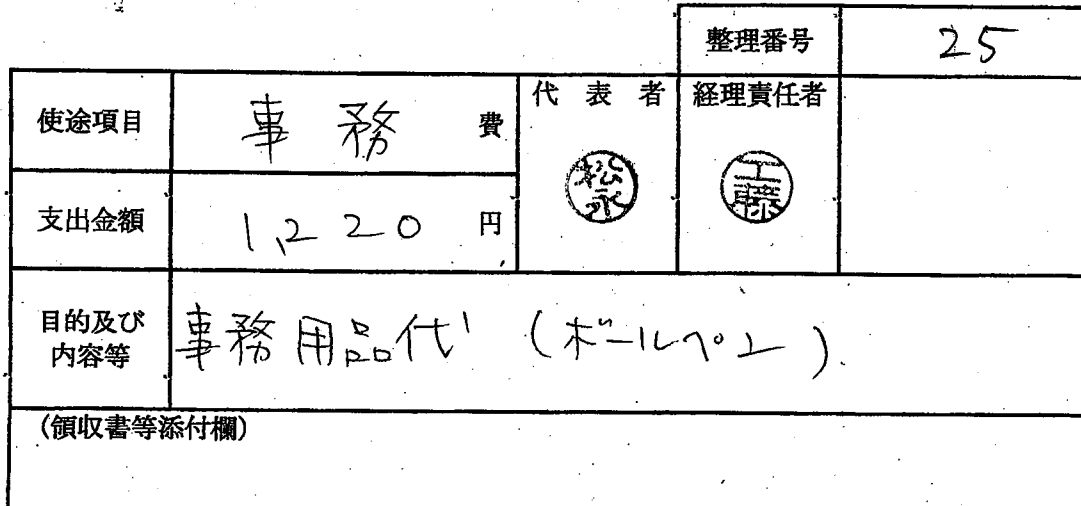 整理番号 25
使途項目 事務 費 代表者 経理責任者
松永 工藤
支出金額 1,220 円
目的及び内容等 事務用品代 (ボールペン).
(領収書等添付欄)